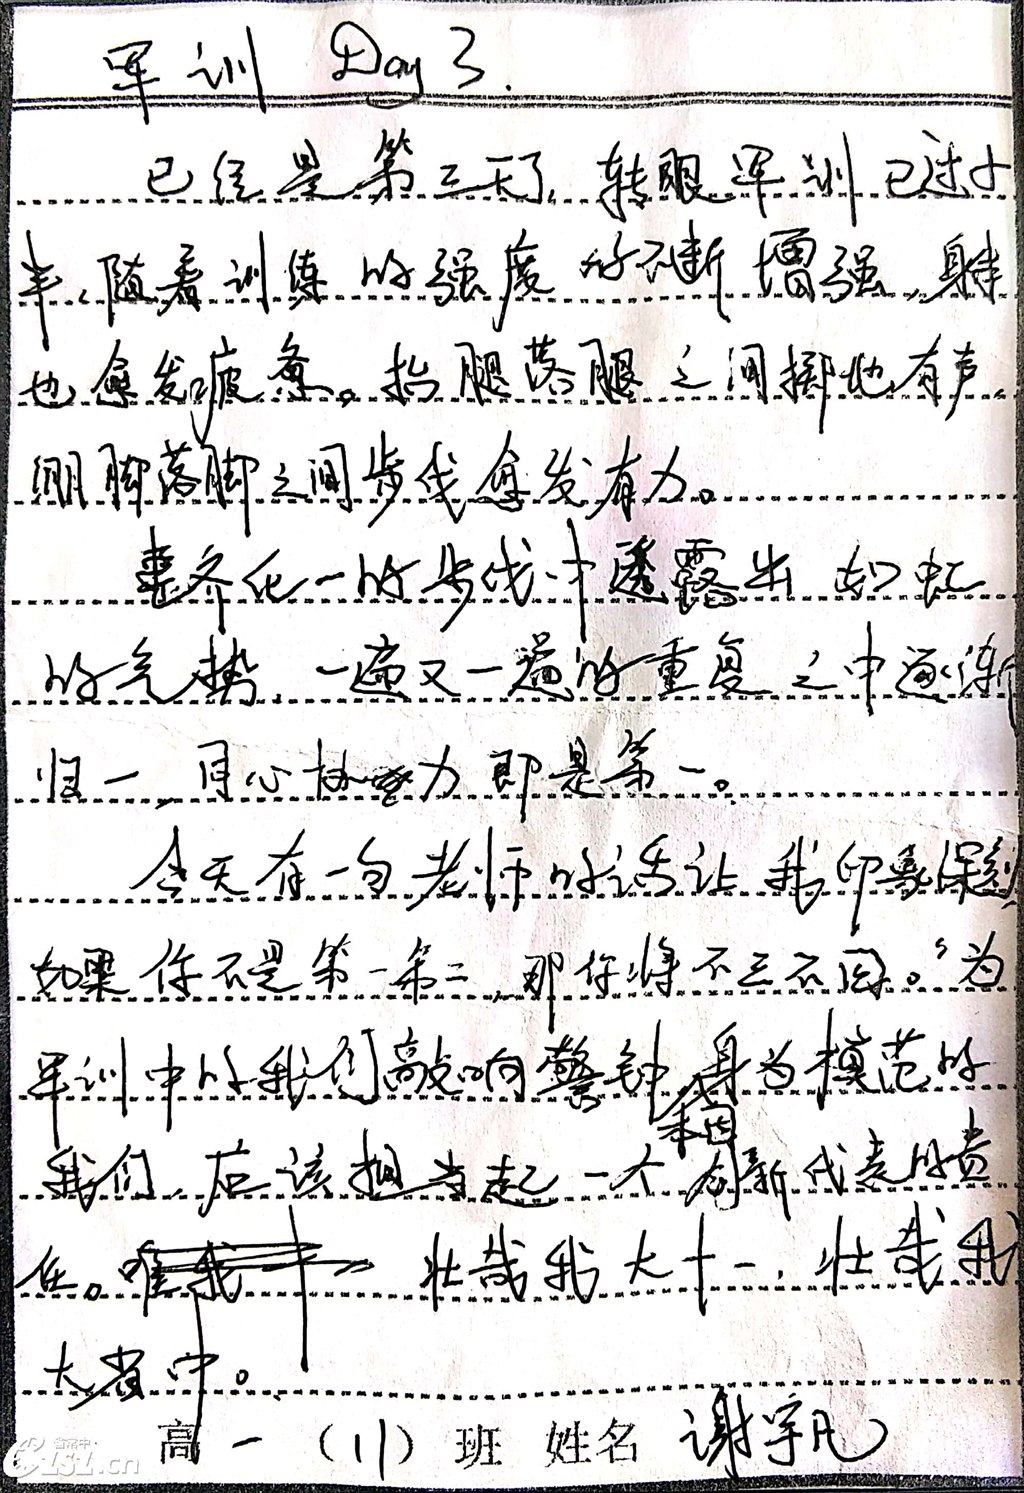 军训 Day 3.
已经是第三天了,转眼军训已过大
半,随着训练的强度的不断增强,身体
也愈发疲惫。抬腿落腿之间掷地有声,
绷脚落脚之间步伐愈发有力。
整齐化一的步伐中透露出如虹
的气势,一遍又一遍的重复之中逐渐
归一,同心协力即是第一。
今天有一句老师的话让我印象深刻
如果你不是第一第二,那你将不三不四。”为
军训中的我们敲响警钟,身为模范的
我们,应该担当起一个创新代表的责
任。壮哉我大十一,壮哉我
大省中。
高一(11)班 姓名 谢宇凡
省常中
CZSZ.cn